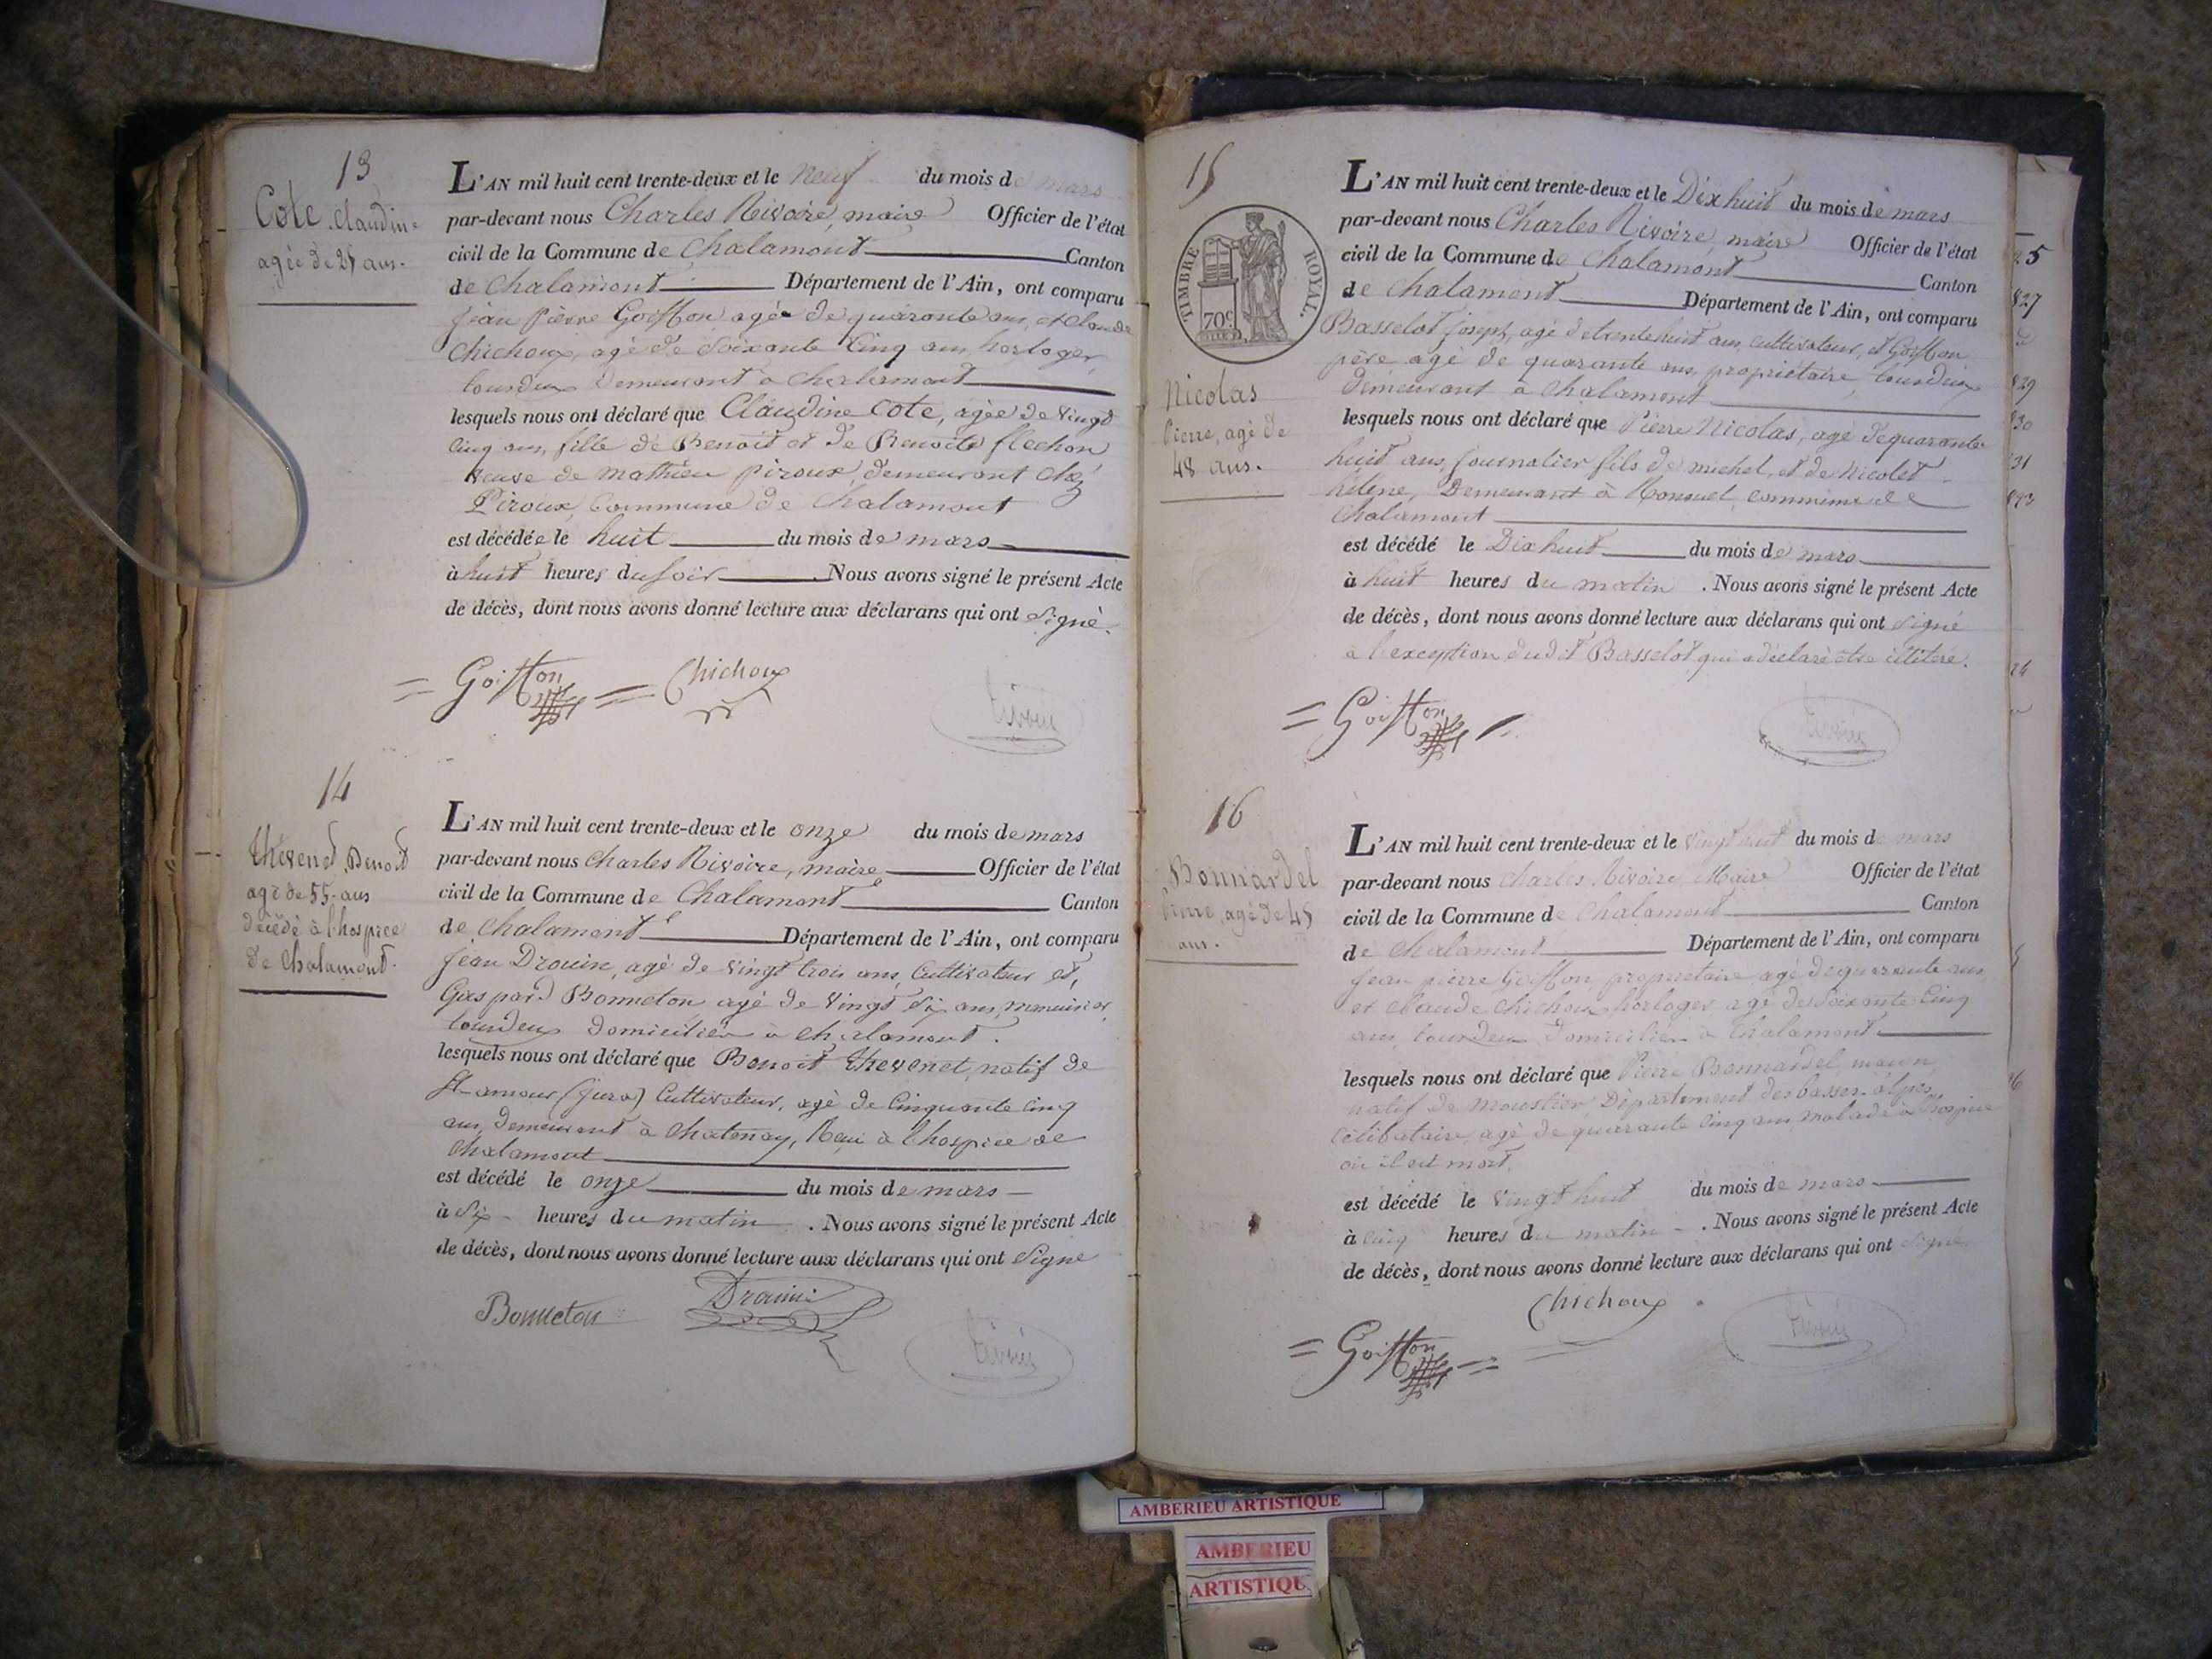 13
Cote Claudine
agée de 25 ans.
L'AN mil huit cent trente-deux et le neuf du mois de mars
par-devant nous Charles Rivoire, maire Officier de l'état
civil de la Commune de Chalamont Canton
de Chalamont Département de l'Ain, ont comparu
jean pierre Goiffon agé de quarante ans, et Claude
Chichoux, agé de Soixante Cinq ans horloger,
tous deux demeurant à Chalamont
lesquels nous ont déclaré que Claudine Cote, agée de vingt
cinq ans, fille de Benoit et de Benoite flechon
veuve de mathieu piroux, demeurant chez
Piroux, Commune de Chalamont
est décédée le huit du mois de mars
à huit heures du soir . Nous avons signé le présent Acte
de décès, dont nous avons donné lecture aux déclarans qui ont Signé.
Goiffon Chichoux
Rivoire
14
thévenet Benoit
agé de 55 ans
décédé à l'hospice
de Chalamont.
L'AN mil huit cent trente-deux et le onze du mois de mars
par-devant nous Charles Rivoire, maire Officier de l'état
civil de la Commune de Chalamont Canton
de Chalamont Département de l'Ain, ont comparu
jean Drouin, agé de vingt trois ans, Cultivateur et,
Gaspard Bonneton agé de vingt Six ans, menuisier,
tous deux domiciliés à Chalamont.
lesquels nous ont déclaré que Benoit thevenet, natif de
St amour (jura) Cultivateur, agé de Cinquante cinq
ans, demeurant à Chatenay, Reçu à l'hospice de
Chalamont
est décédé le onze du mois de mars
à Six heures du matin . Nous avons signé le présent Acte
de décès, dont nous avons donné lecture aux déclarans qui ont Signé
Bonneton Drouin
Rivoire
15
TIMBRE ROYAL.
70c
Nicolas
Pierre, agé de
48 ans.
L'AN mil huit cent trente-deux et le Dix huit du mois de mars
par-devant nous Charles Rivoire, maire Officier de l'état
civil de la Commune de Chalamont Canton
de Chalamont Département de l'Ain, ont comparu
Basselot joseph, agé de trente huit ans, cultivateur, et Goiffon
père agé de quarante ans, propriétaire, tous deux
demeurant à Chalamont
lesquels nous ont déclaré que Pierre Nicolas, agé de quarante
huit ans, journalier fils de michel, et de Nicolet
hélène, Demeurant à Ronsuel, commune de
Chalamont
est décédé le Dix huit du mois de mars
à huit heures du matin . Nous avons signé le présent Acte
de décès, dont nous avons donné lecture aux déclarans qui ont Signé
à l'exception dudit Basselot qui a déclaré être illitéré.
Goiffon
Rivoire
16
Bonnardel
Pierre, agé de 45
ans.
L'AN mil huit cent trente-deux et le vingt huit du mois de mars
par-devant nous Charles Rivoire, Maire Officier de l'état
civil de la Commune de Chalamont Canton
de Chalamont Département de l'Ain, ont comparu
Jean pierre Goiffon, propriétaire agé de quarante ans,
et Claude Chichoux, horloger agé de soixante Cinq
ans, tous deux domiciliés à Chalamont
lesquels nous ont déclaré que Pierre Bonnardel, maçon,
natif de Moustier, Département des basses-alpes,
Célibataire, agé de quarante Cinq ans, malade à l'hospice
où il est mort.
est décédé le vingt huit du mois de mars
à cinq heures du matin . Nous avons signé le présent Acte
de décès, dont nous avons donné lecture aux déclarans qui ont Signé
Chichoux
Goiffon
Rivoire
25
827
829
830
831
AMBERIEU ARTISTIQUE
AMBERIEU
ARTISTIQU